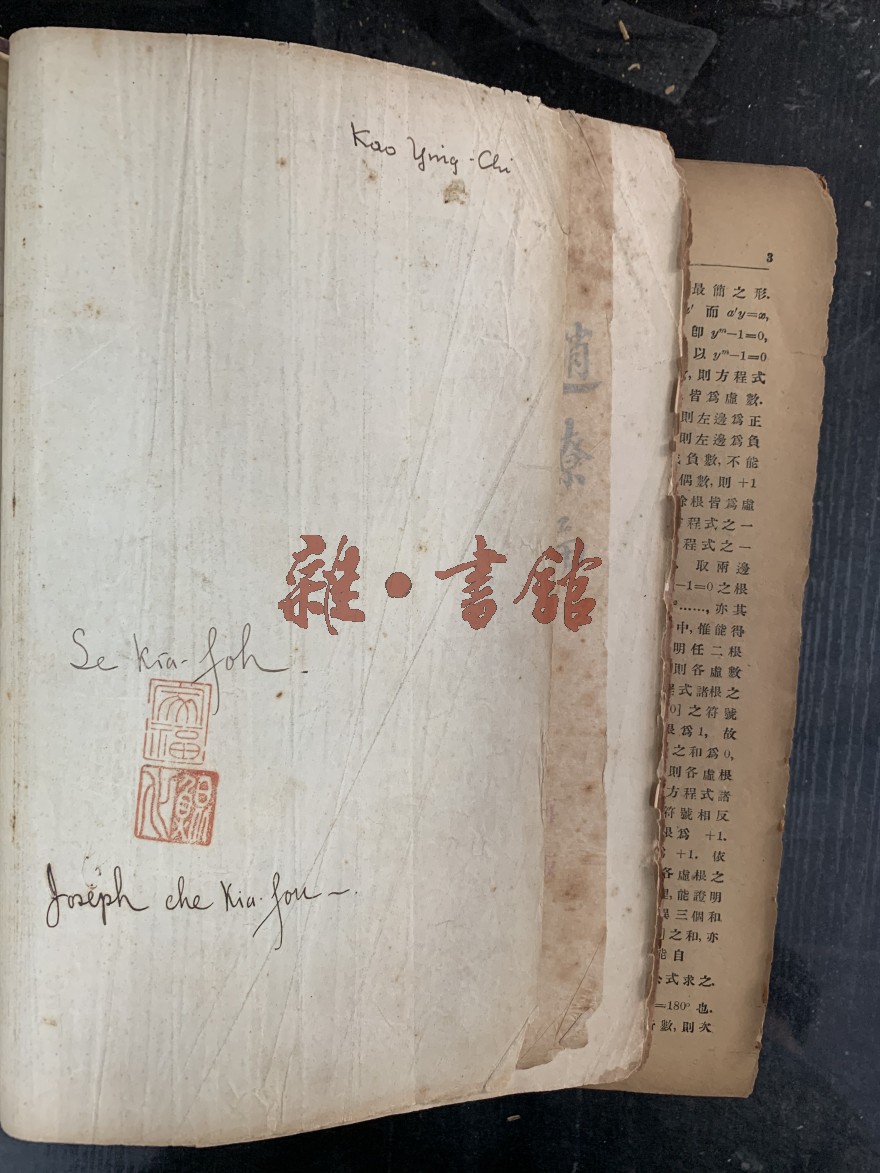 Kao Ying-Chi
雜·書館
Se Kia-foh
家福
Joseph che Kia-fou
3
最簡之形.
而 a'y=x,
卽 yᵐ−1=0,
以 yᵐ−1=0
則方程式
皆爲虛數.
則左邊爲正
則左邊爲負
負數,不能
偶數,則 +1
餘根皆爲虛
程式之一
程式之一
取兩邊
−1=0之根
……,亦其
中,惟能得
明任二根
則各虛數
式諸根之
0]之符號
爲1, 故
之和爲0,
則各虛根
方程式諸
符號相反
根爲 +1.
+1. 依
各虛根之
能證明
三個和
之和,亦
能自
公式求之.
=180° 也.
數,則次